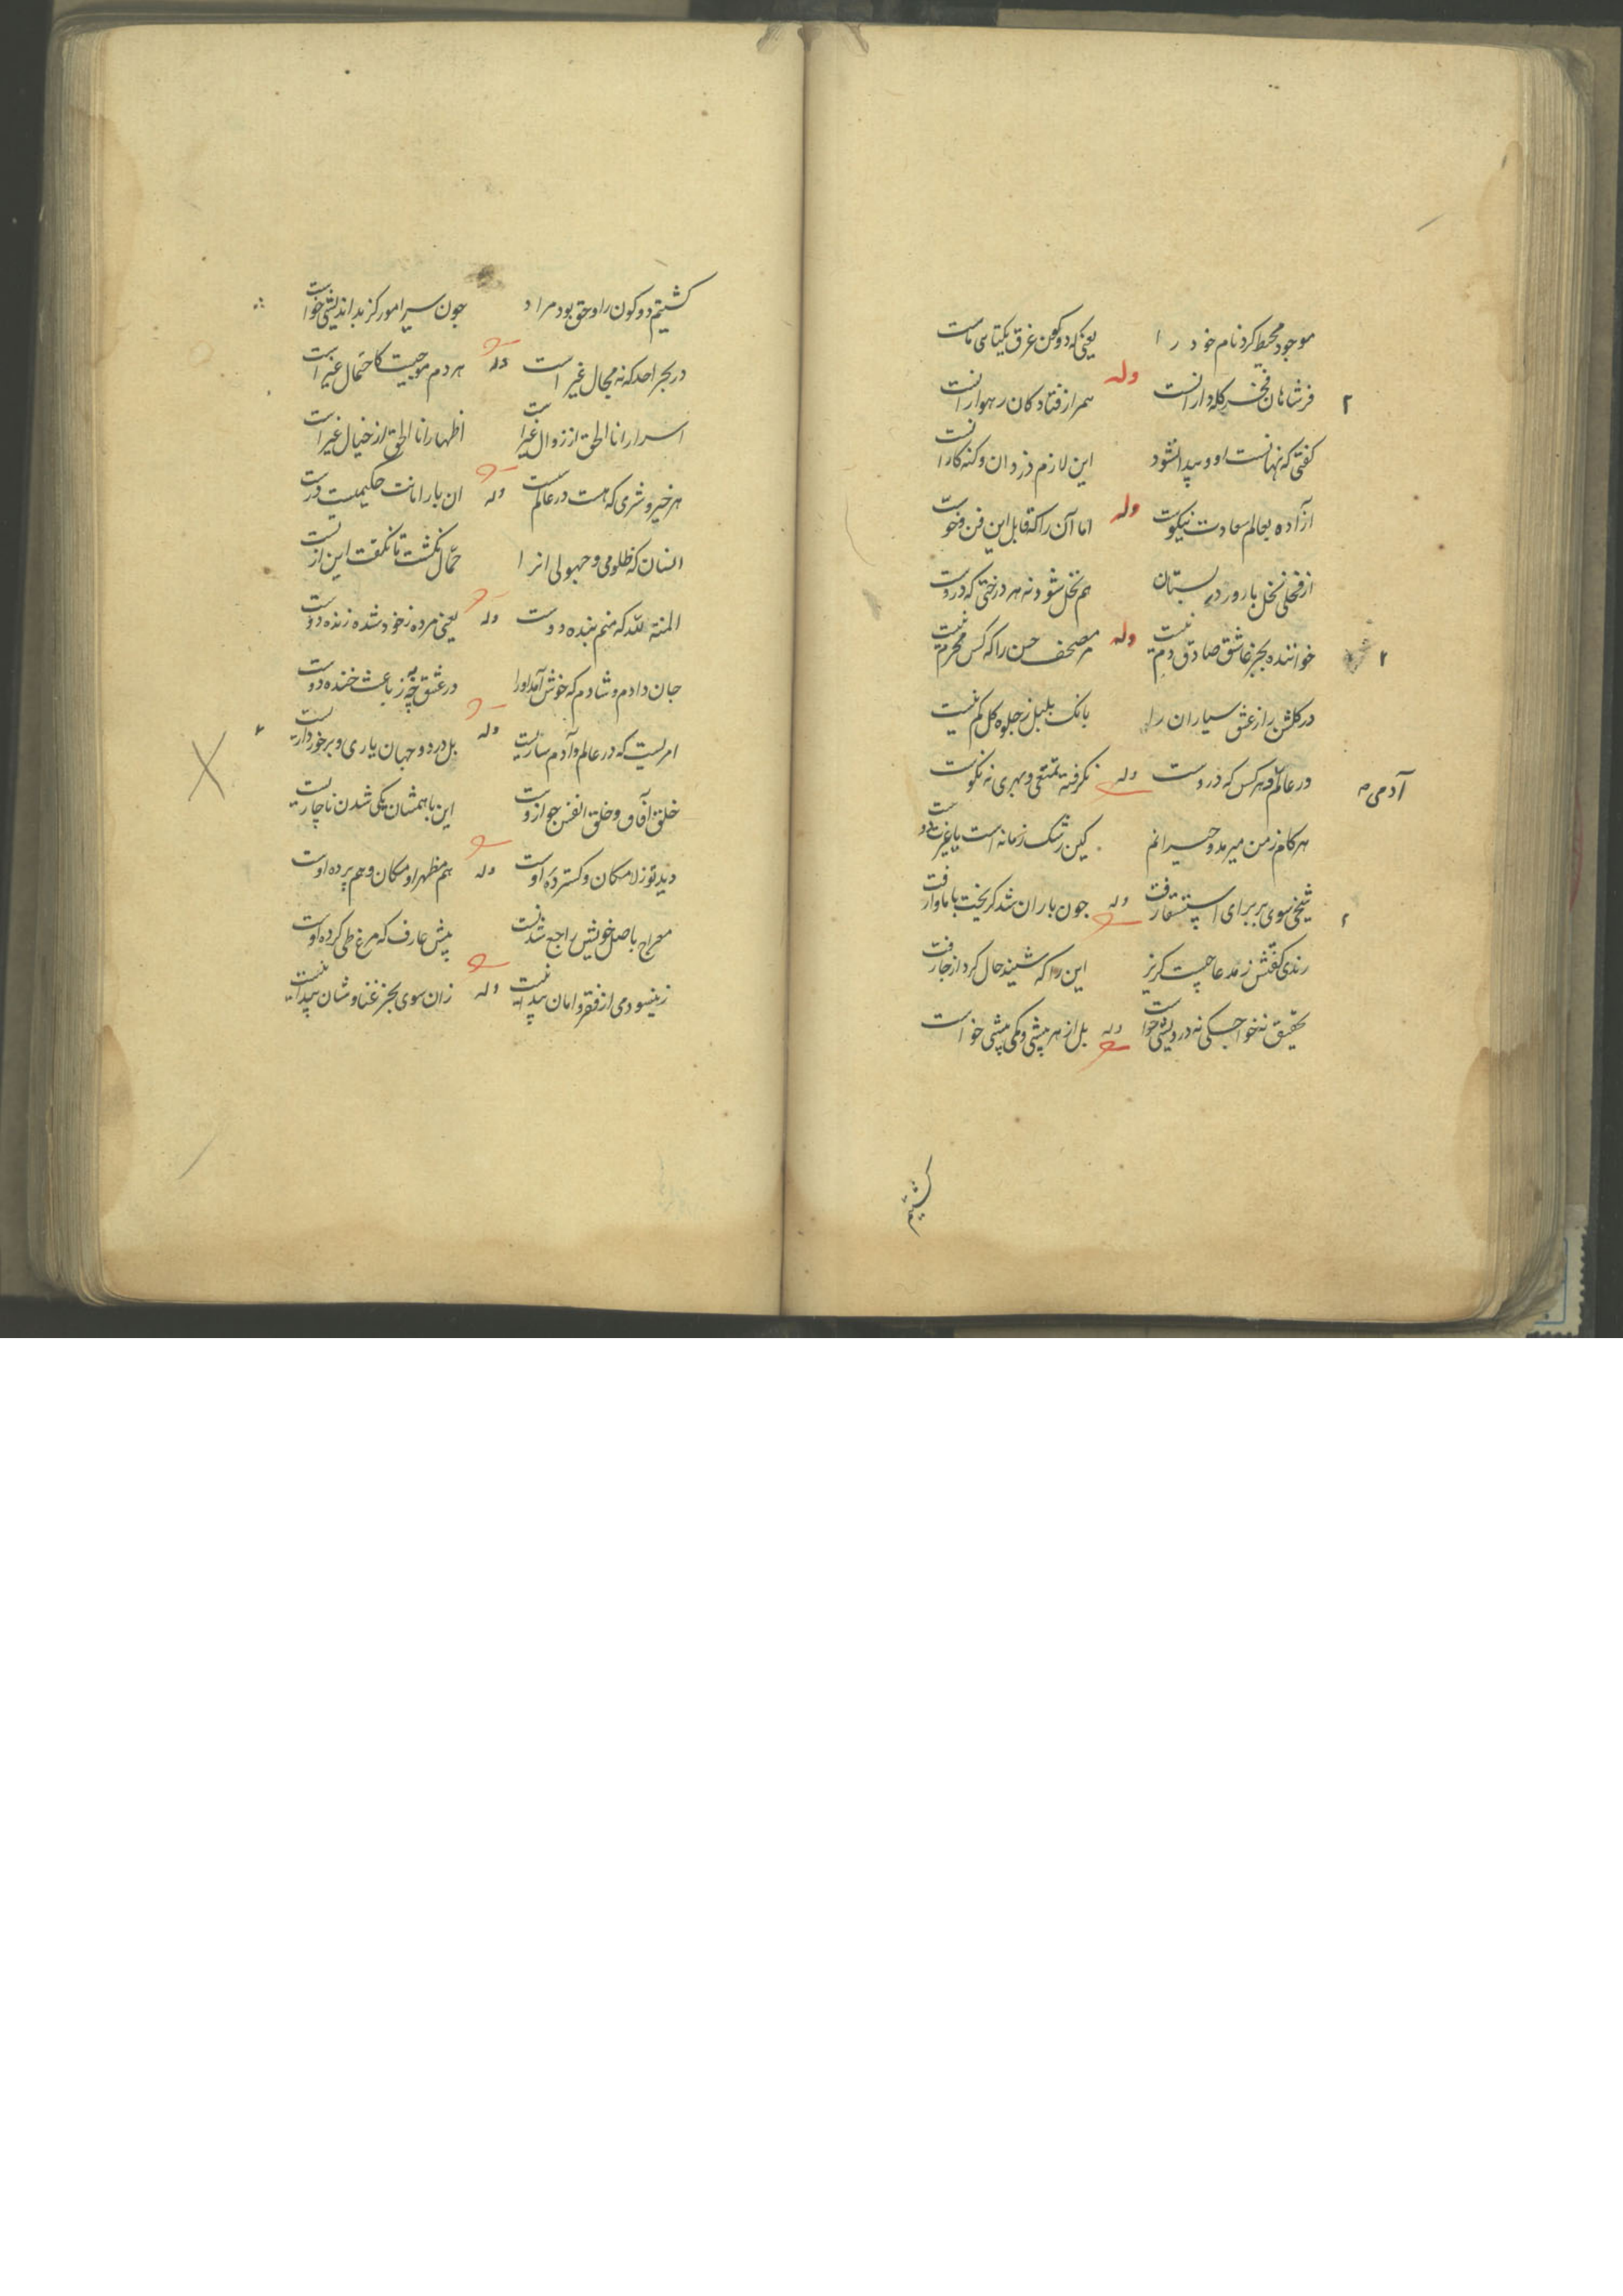 موجود محیط کرد نام خود را یعنی که دو کون غرق یکتایی ماست
فر شاهان فخر کله‌دارانست وله همراز فتادگان رهوارانست
کفتی که نهانست او و پیدا نشود این لازم دزدان و کنه کارانست
آزاده بعالم سعادت نیکوست وله اما آن را که قابل این فن و خوست
از فحلی نخل بارور در بستان هم نخل شود نه هر درختی که دروست
خواننده بجز عاشق صادق دم نیست وله مر مصحف حسن را که کس محرم نیست
در کلشن راز عشق سیاران را بانک بلبل ز جلوه کل کم نیست
در عالم و هر کس که دروست وله نکرفته تمتعی و مهری نه نکوست
آدمی
هر کام ز من میرمد و حیرانم کین رشک زمانه است یا غیرت
شیخی سوی بر برای استسقا رفت وله چون باران شد کریخت با ماوا رفت
رندی کفتش ز مدعا چیست کریز این را که شنید حال کرد از جا رفت
تحقیق نه خواجکی نه درویشی خواست وله بل از هر بیشی و کمی پیشی خواست
کشتیم
کشتیم دو کون را و حق بود مراد چون سیر امور کز بد اندیشی خواست
در بحر احد که نه مجال غیر است وله هر دم موجیست کاحتمال غیر است
اسرار انا الحق از زوال غیر است اظهار انا الحق از خیال غیر است
هر خیر و شری که هست در عالم هست وله آن بار امانت حکیمیست درست
انسان که ظلومی و جهولی انرا حمال نکشت تا نکفت این از تست
المنة لله که منم بنده دوست وله یعنی مرده ز خود شده زنده دوست
جان دادم و شادم که خوش آمد اورا در عشق چه به ز باعث خنده دوست
امریست که در عالم و آدم ساریست وله بل در دو جهان یاری و برخورداریست
خلق آفاق و خلق انفس جو ازوست این با همشان یکی شدن ناچاریست
دید تو ز لامکان و کسترده اوست وله هم مظهر او مکان و هم پرده اوست
معراج باصل خویش راجع شدنست پیش عارف که مرغ طی کرده اوست
زینسو دمی از فقر و امان پیدا نیست وله زان سوی بجز غنا و شان پیدا نیست